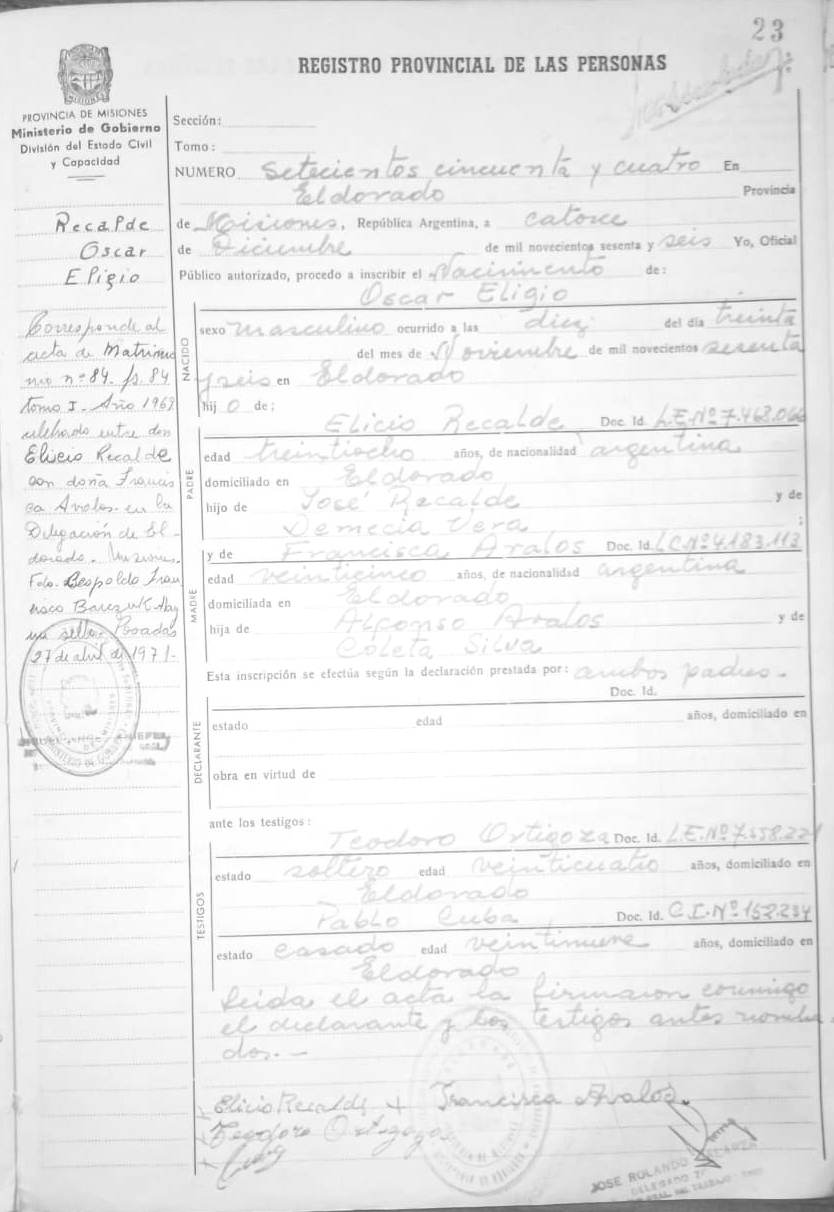 23
REGISTRO PROVINCIAL DE LAS PERSONAS
MISIONES
PROVINCIA DE MISIONES
Ministerio de Gobierno
División del Estado Civil
y Capacidad
Recalde
Oscar
Eligio
Corresponde al
acta de Matrimo
nio nº 84. fs. 84
tomo I. Año 1969
celebrado entre don
Eliseo Recalde
con doña Francis
ca Avalos. en la
Delegación de El-
dorado. Misiones.
Fdo. Leopoldo Fran
cisco
un sello. Posadas
27 de abril de 1971-
Sección:
Tomo:
NUMERO Setecientos cincuenta y cuatro En
Eldorado Provincia
de Misiones, República Argentina, a catorce
de Diciembre de mil novecientos sesenta y seis Yo, Oficial
Público autorizado, procedo a inscribir el Nacimiento de:
Oscar Eligio
NACIDO
sexo masculino ocurrido a las diez del día treinta
del mes de Noviembre de mil novecientos sesenta
y seis en Eldorado
hijo de:
PADRE
Elicio Recalde Doc. Id. L.E.Nº 7.468.066
edad treintiocho años, de nacionalidad argentina
domiciliado en Eldorado
hijo de José Recalde y de
Demecia Vera ;
MADRE
y de Francisca Avalos Doc. Id. L.C.Nº 4.183.113
edad veinticinco años, de nacionalidad argentina
domiciliada en Eldorado
hija de Alfonso Avalos y de
Coleta Silva
Esta inscripción se efectúa según la declaración prestada por: ambos padres.-
DECLARANTE
Doc. Id.
estado edad años, domiciliado en
obra en virtud de
ante los testigos:
TESTIGOS
Teodoro Ortigoza Doc. Id. L.E.Nº 7.558.221
estado soltero edad veinticuatro años, domiciliado en
Eldorado
Pablo Cuba Doc. Id. C.I.Nº 152.234
estado casado edad veintinueve años, domiciliado en
Eldorado
Leida el acta la firmaron conmigo
el declarante y los testigos antes nombra
dos.-
Elicio Recalde + Francisca Avalos.
Teodoro Ortigoza
JOSE ROLANDO
DELEGADO